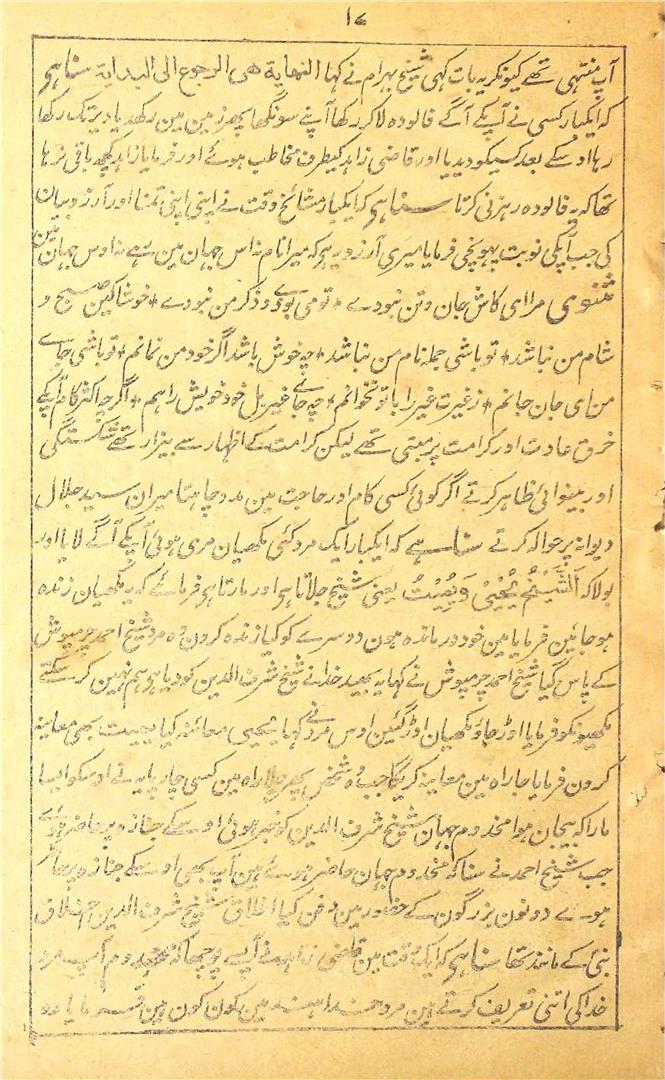 ١٧
آپ منتہی تھے کیونکر یہ بات کہی شیخ بہرام نے کہا النہایة ھی الرجوع الی البدایة سنا ہی
کہ ایکبار کسی نے آپکے آگے فالودہ لاکر رکھا آپنے سونگھا پھر زمین مین رکھدیا دیر تک رکھا
رہا اوسکے بعد کسیکو دیدیا اور قاضی زاہد کیطرف مخاطب ہوئے اور فرمایا زاہد کچھ باقی نرہا
تھا کہ یہ فالودہ رہزنی کرتا سنا ہی کہ ایکبار مشائخ وقت نے اپنی اپنی تمنا اور آرزو بیان
کی جب آپکی نوبت پہونچی فرمایا میری آرزو یہ ہی کہ میرا نام نہ اس جہان مین رہے نہ اوس جہان مین
مثنوی مرا ای کاش جان و تن نبودے ٭ تو می بودی و ذکر من نبودے ٭ خوشا کین صبح و
شام من نباشد ٭ تو باشی جملہ نام من نباشد ٭ چہ خوش باشد اگر خود من نمانم ٭ تو باشی جاے
من ای جان جانم ٭ ز غیرت غیر را با تو نخوانم ٭ چہ جاے غیر بل خود خویش را ہم ٭ اگرچہ اکثر کام آپکے
خرق عادت اور کرامت پر مبنی تھے لیکن کرامت کے اظہار سے بیزار تھے شکستگی
اور بینوائی ظاہر کرتے اگر کوئی کسی کام اور حاجت مین مدد چاہتا میران سید جلال
دیوانہ پر حوالہ کرتے سنا ہے کہ ایکبار ایک مرد کئی مکھیان مری ہوئی آپکے آگے لایا اور
بولا کہ اَلشَّیْخُ یُحْیِیْ وَیُمِیْتُ یعنی شیخ جلاتا ہی اور مارتا ہی فرمائے کہ یہ مکھیان زندہ
ہو جائین فرمایا مین خود درماندہ ہون دوسرے کو کیا زندہ کرون وہ مرد شیخ احمد چرمپوش
کے پاس گیا شیخ احمد چرمپوش نے کہا یہ بھید خدا نے شیخ شرف الدین کو دیا ہی ہم نہین کر سکتے
مکھیونکو فرمایا اوڑ جاؤ مکھیان اوڑ گئین اوس مرد نے کہا یحیی معائنہ کیا یمیت بھی معاینہ
کرون فرمایا جا راہ مین معاینہ کریگا جب وہ شخص پھر چلا راہ مین کسی چارپایہ نے اوسکو ایسا
مارا کہ بیجان ہوا مخدوم جہان شیخ شرف الدین کو خبر ہوئی اوسکے جنازہ پر حاضر ہوئے
جب شیخ احمد نے سنا کہ مخدوم جہان حاضر ہوئے ہین آپ بھی اوسکے جنازہ پر حاضر
ہوے دونون بزرگون کے حضور مین دفن کیا اخلاق شیخ شرف الدین اخلاق
نبی کے مانند تھا سنا ہی کہ ایک وقت مین قاضی زاہد نے آپسے پوچھا کہ مخدوم آپ مرد
خدا کی اتنی تعریف کرتے ہین مرد خدا ہند مین کون کون ہین فرمایا وہ